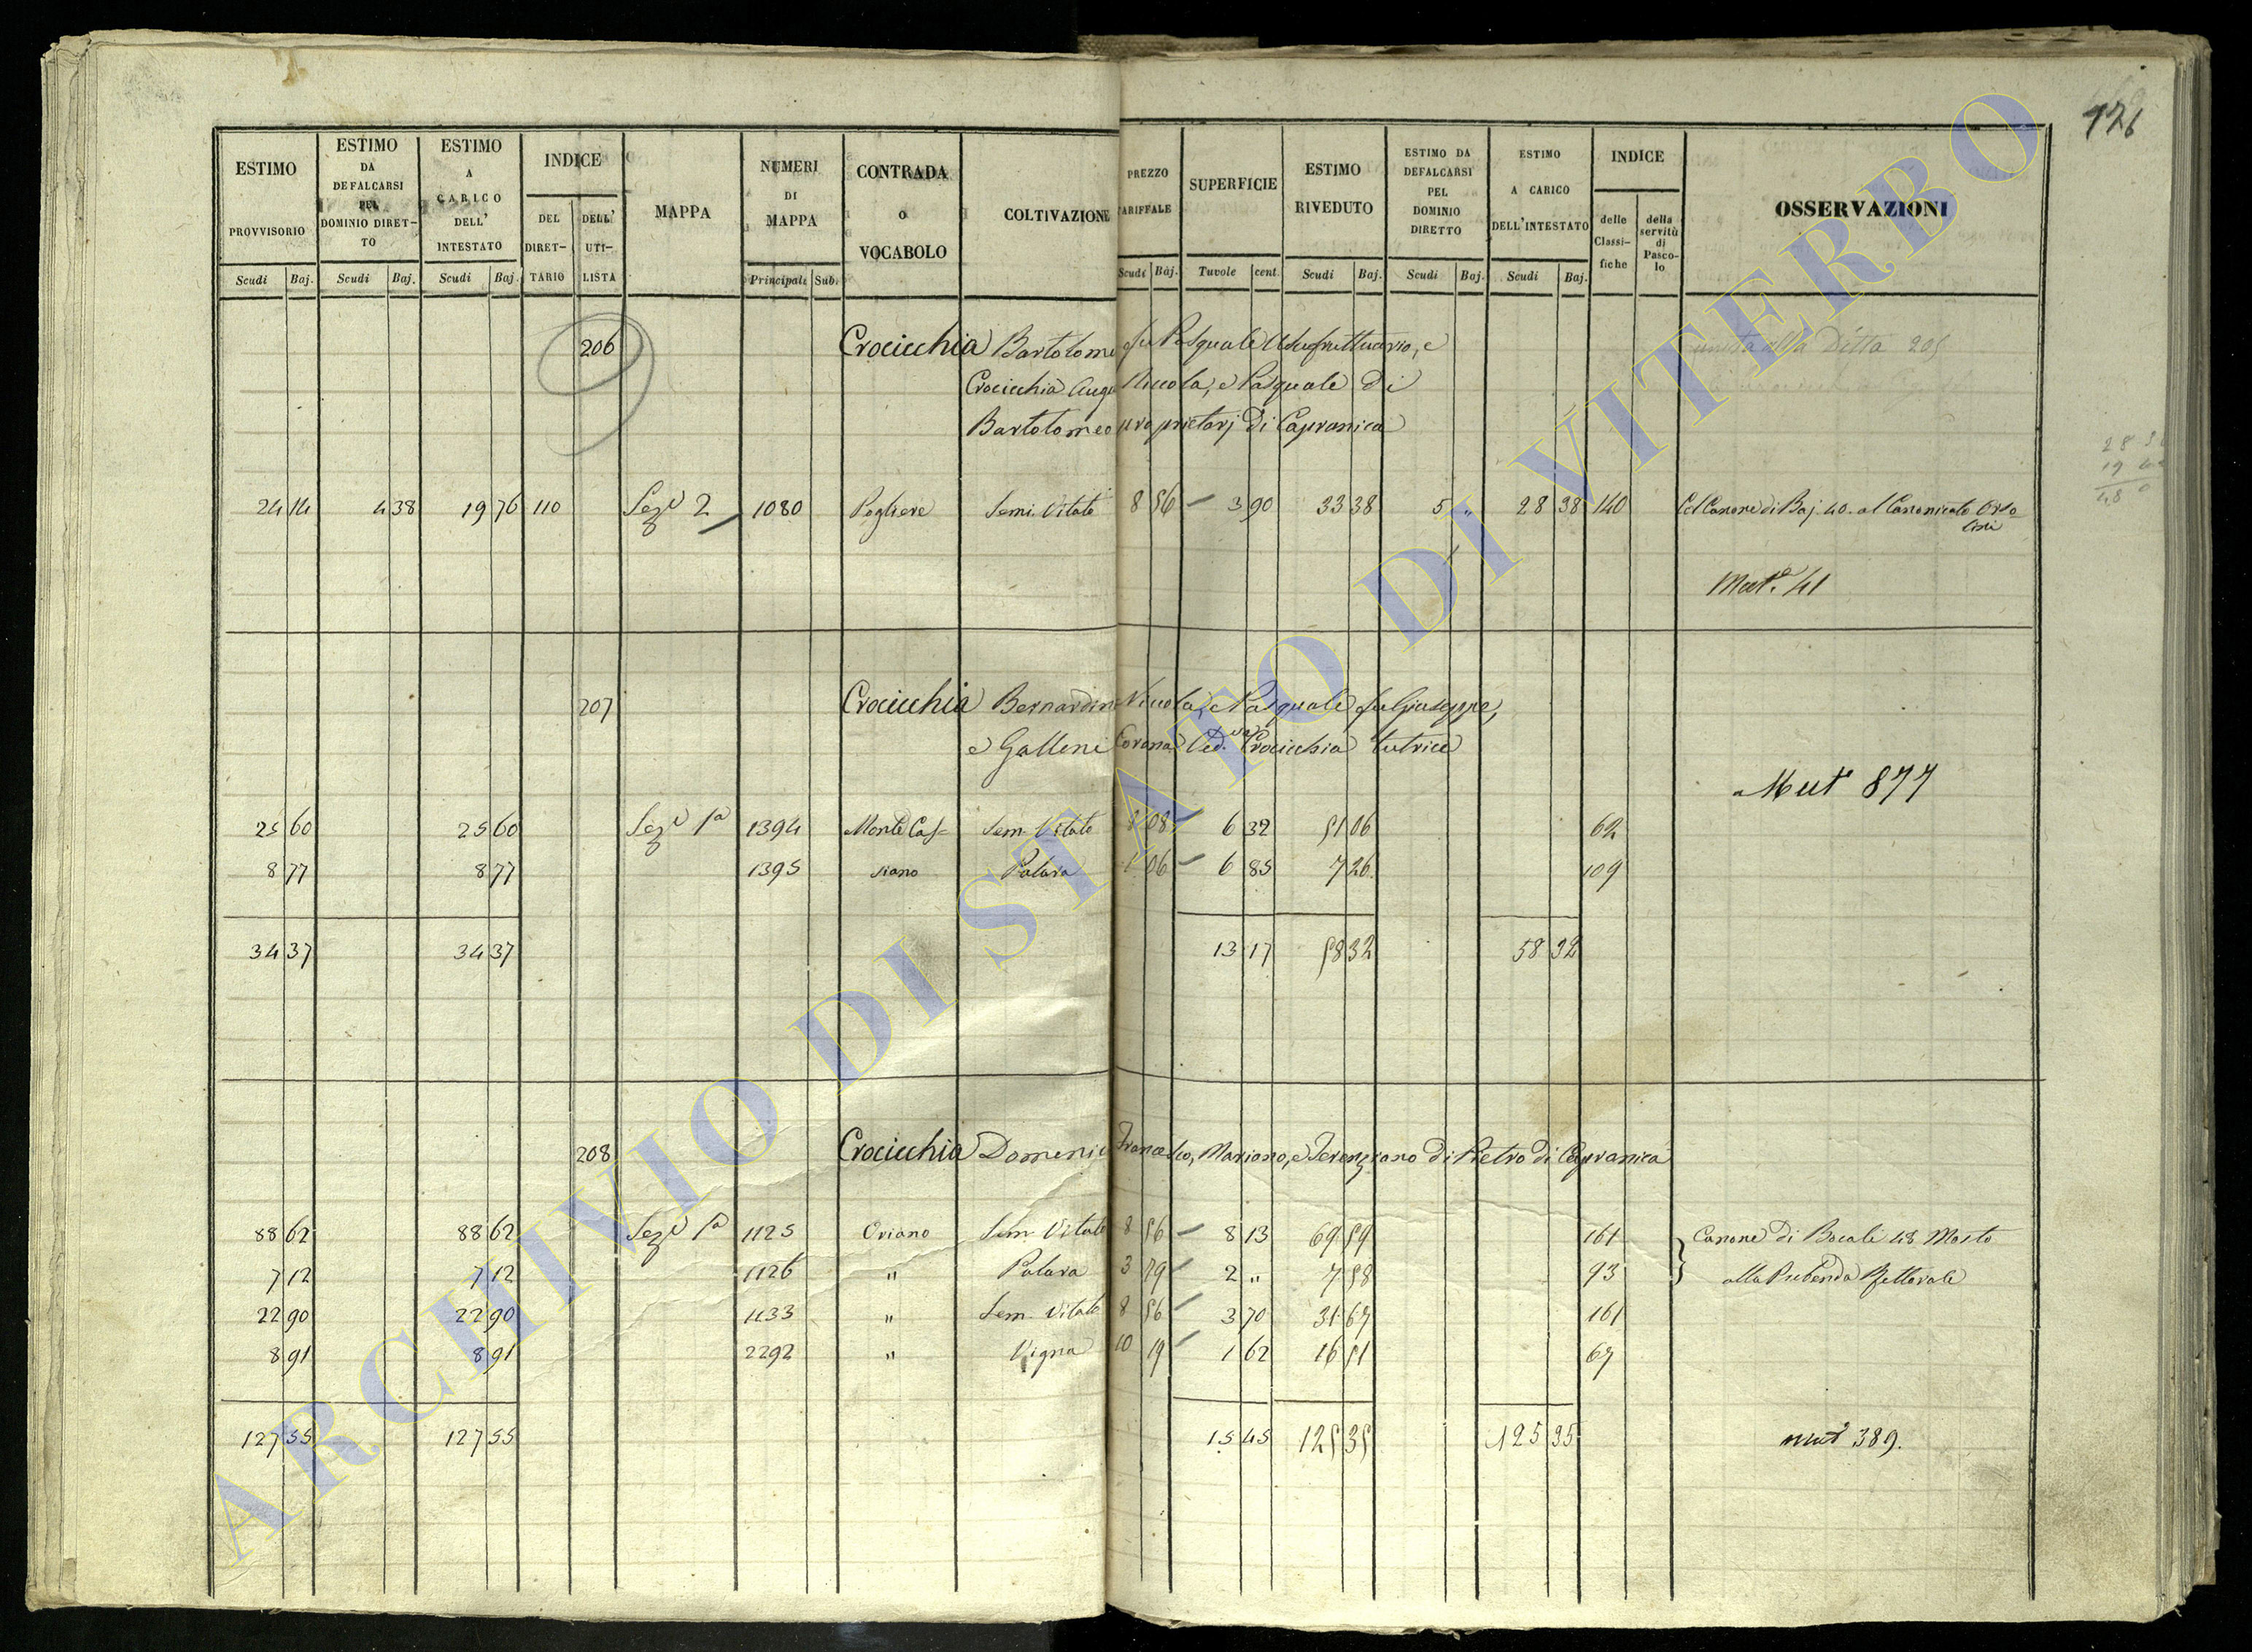 126
ESTIMO PROVVISORIO Scudi Baj. ESTIMO DA DEFALCARSI PEL DOMINIO DIRETTO Scudi Baj. ESTIMO A CARICO DELL' INTESTATO Scudi Baj. INDICE DEL DIRETTARIO DELL' UTILISTA MAPPA NUMERI DI MAPPA Principali Sub. CONTRADA O VOCABOLO COLTIVAZIONE PREZZO TARIFFALE Scudi Baj. SUPERFICIE Tavole cent. ESTIMO RIVEDUTO Scudi Baj. ESTIMO DA DEFALCARSI PEL DOMINIO DIRETTO Scudi Baj. ESTIMO A CARICO DELL' INTESTATO Scudi Baj. INDICE delle Classifiche della servitù di Pascolo OSSERVAZIONI
206 Crocicchia Bartolome fu Pasquale Usufruttuario, e unita alla Ditta 205
Crocicchia Aug Niccola, e Pasquale di
Bartolomeo proprietarj di Capranica
24 14 4 38 19 76 110 Sez.e 2 1080 Pogliere Semi. Vitato 8 56 3 90 33 38 5 " 28 38 140 Col Canone di Baj. 40. al Canonicato Orsolini
Mut.e 41
207 Crocicchia Bernardin Niccola, e Pasquale fu Giuseppe,
e Galleni Corona Ved.va Crocicchia tutrice
Mut 877
25 60 25 60 Sez.e 1a 1394 Monte Cas- Sem. Vitato 8 08 6 32 51 06 62
8 77 8 77 1395 siano Polara 1 06 6 85 7 26 109
34 37 34 37 13 17 58 32 58 32
208 Crocicchia Domenic Francesco, Mariano, e Terenziano di Pietro di Capranica
88 62 88 62 Sez.e 1a 1125 Oriano Sem. Vitato 8 56 8 13 69 59 161 Canone di Bocali 48 Mosto
7 12 7 12 1126 " Polara 3 79 2 " 7 58 93 alla Prebenda Rettorale
22 90 22 90 1133 " Sem. Vitato 8 56 3 70 31 67 161
8 91 8 91 2292 " Vigna 10 19 1 62 16 51 67
127 55 127 55 15 45 125 35 125 35 mut 389.
ARCHIVIO DI STATO DI VITERBO